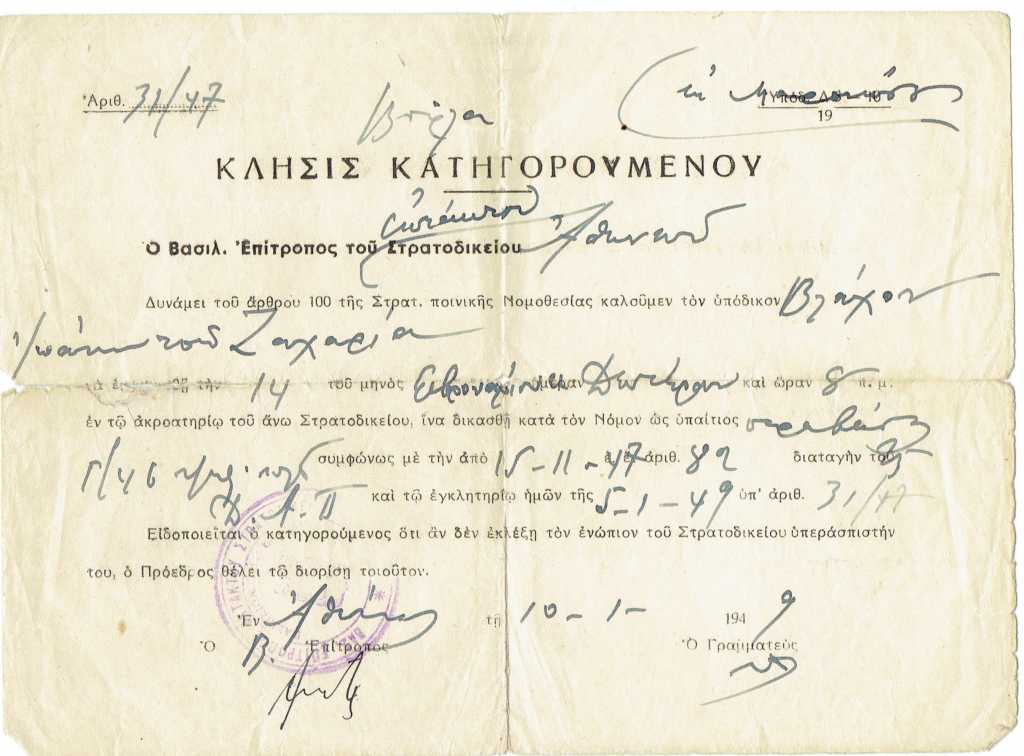 Ἀριθ. 31/47
19
ΚΛΗΣΙΣ ΚΑΤΗΓΟΡΟΥΜΕΝΟΥ
ἐκτάκτου
Ὁ Βασιλ. Ἐπίτροπος τοῦ Στρατοδικείου Ἀθηνῶν
Δυνάμει τοῦ ἄρθρου 100 τῆς Στρατ. ποινικῆς Νομοθεσίας καλοῦμεν τὸν ὑπόδικον Βλάχον
Ἰωάννην τοῦ Ζαχαρία
τὴν 14 τοῦ μηνὸς ἡμέραν Δευτέραν καὶ ὥραν 8 π. μ.
ἐν τῷ ἀκροατηρίῳ τοῦ ἄνω Στρατοδικείου, ἵνα δικασθῇ κατὰ τὸν Νόμον ὡς ὑπαίτιος
συμφώνως μὲ τὴν ἀπὸ 15-11-47 ἀριθ. 82 διαταγὴν τοῦ
καὶ τῷ ἐγκλητηρίῳ ἡμῶν τῆς 5-1-49 ὑπ' ἀριθ. 31/47
Εἰδοποιεῖται ὁ κατηγορούμενος ὅτι ἂν δὲν ἐκλέξῃ τὸν ἐνώπιον τοῦ Στρατοδικείου ὑπεράσπιστήν
του, ὁ Πρόεδρος θέλει τῷ διορίσῃ τοιοῦτον.
Ἐν Ἀθήναις τῇ 10-1- 1949
Ὁ Β. Ἐπίτροπος
Ὁ Γραμματεὺς